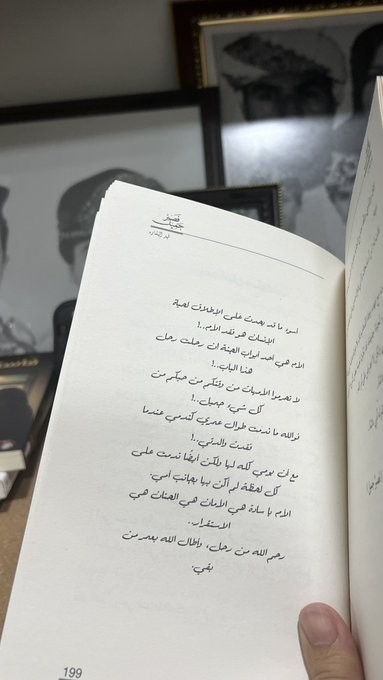 فصبرٌ جميل
أسوء ما قد يحدث على الإطلاق لحياة
الإنسان هو فقد الأم..!
الأم هي أحد أبواب الجنة إن رحلت رحل
هذا الباب..!
لا تحرموا الأمهات من وقتكم من حبكم من
كل شيء جميل..!
فوالله ما ندمت طوال عمري كندمي عندما
فقدت والدتي..!
مع أن يومي كله لها ولكن أيضًا ندمت على
كل لحظة لم أكن بها بجانب أمي.
الأم يا سادة هي الأمان هي الحنان هي
الاستقرار.
رحم الله من رحل، وأطال الله بعمر من
بقي.
199